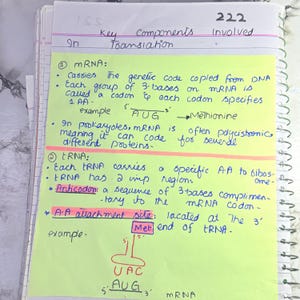 222
Key Components Involved
In Translation
① mRNA:
• Carries the genetic code copied from DNA
• Each group of 3-bases on mRNA is
called a codon & each codon specifies
1 AA.
example AUG → Methionine
• In prokaryotes mRNA is often polycistronic
meaning it can code for several
different proteins.
② tRNA:
• Each tRNA carries a specific AA to ribos-
ome.
• tRNA has 2 imp region.
• Anticodon: a sequence of 3-bases complimen-
-tary to the mRNA codon.
• A.A attachment site: located at the 3'
end of tRNA.
example- Met
UAC
AUG
mRNA